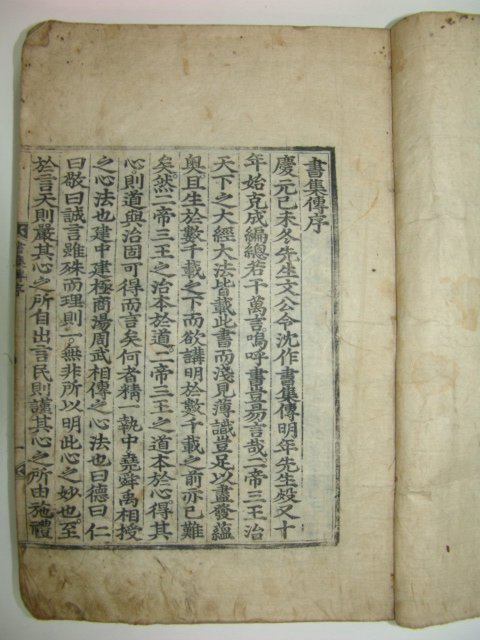 書集傳序
慶元己未冬先生文公令沈作書集傳明年先生歿又十
年始克成編總若干萬言嗚呼書豈易言哉二帝三王治
天下之大經大法皆載此書而淺見薄識豈足以盡發蘊
奧且生於數千載之下而欲講明於數千載之前亦已難
矣然二帝三王之治本於道二帝三王之道本於心得其
心則道與治固可得而言矣何者精一執中堯舜禹相授
之心法也建中建極商湯周武相傳之心法也曰德曰仁
曰敬曰誠言雖殊而理則一無非所以明此心之妙也至
於言天則嚴其心之所自出言民則謹其心之所由施禮
書集傳序
一